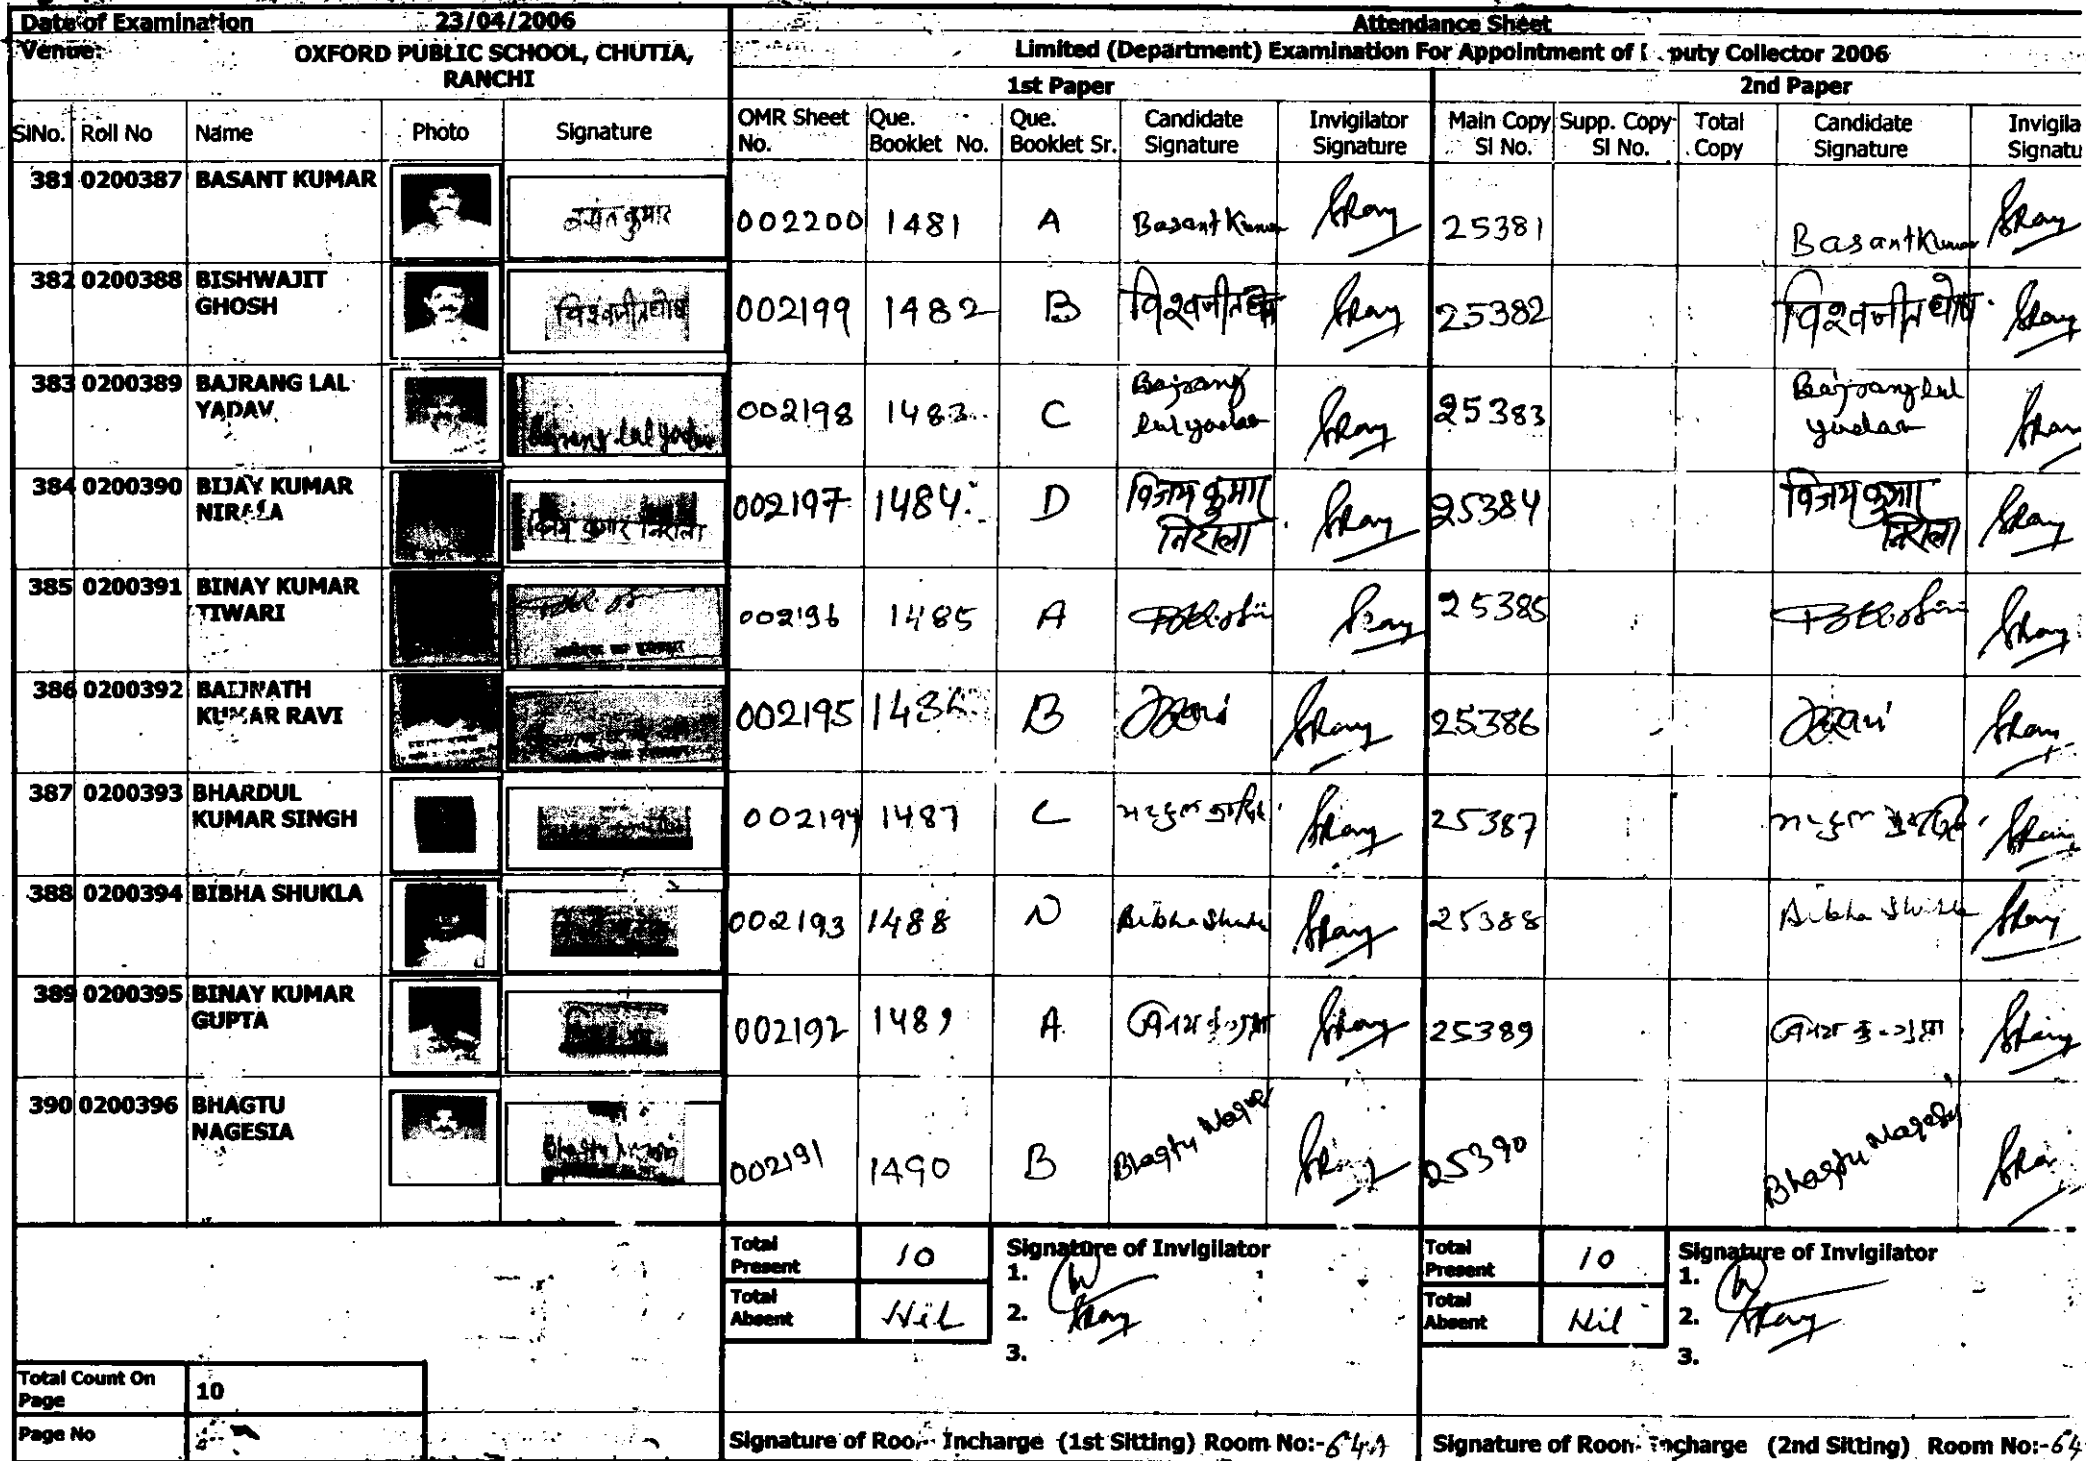 Date of Examination 23/04/2006 Attendance Sheet
Venue: OXFORD PUBLIC SCHOOL, CHUTIA, RANCHI
Limited (Department) Examination For Appointment of puty Collector 2006
1st Paper 2nd Paper
SlNo. Roll No Name Photo Signature OMR Sheet No. Que. Booklet No. Que. Booklet Sr. Candidate Signature Invigilator Signature Main Copy Sl No. Supp. Copy Sl No. Total Copy Candidate Signature Invigila Signatu
381 0200387 BASANT KUMAR बसंत कुमार 002200 1481 A Basant Kumar 25381 Basant Kumar
382 0200388 BISHWAJIT GHOSH विश्वजीत घोष 002199 1482 B विश्वजीत घोष 25382 विश्वजीत घोष
383 0200389 BAJRANG LAL YADAV Bajrang lal yadav 002198 1483 C Bajrang lal yadav 25383 Bajrang lal yadav
384 0200390 BIJAY KUMAR NIRALA विजय कुमार निराला 002197 1484 D विजय कुमार निराला 25384 विजय कुमार निराला
385 0200391 BINAY KUMAR TIWARI 002196 1485 A 25385
386 0200392 BAIJNATH KUMAR RAVI 002195 B 25386
387 0200393 BHARDUL KUMAR SINGH 002194 1487 C 25387
388 0200394 BIBHA SHUKLA 002193 1488 D Bibha Shukla 25388 Bibha Shukla
389 0200395 BINAY KUMAR GUPTA 002192 1489 A 25389
390 0200396 BHAGTU NAGESIA 002191 1490 B Bhagtu Nagesia 25390 Bhagtu Nagesia
Total Present 10 Signature of Invigilator Total Present 10 Signature of Invigilator
1. 1.
Total Absent Nil 2. Total Absent Nil 2.
3. 3.
Total Count On Page 10
Page No
Signature of Room Incharge (1st Sitting) Room No:-64A Signature of Room Incharge (2nd Sitting) Room No:-64